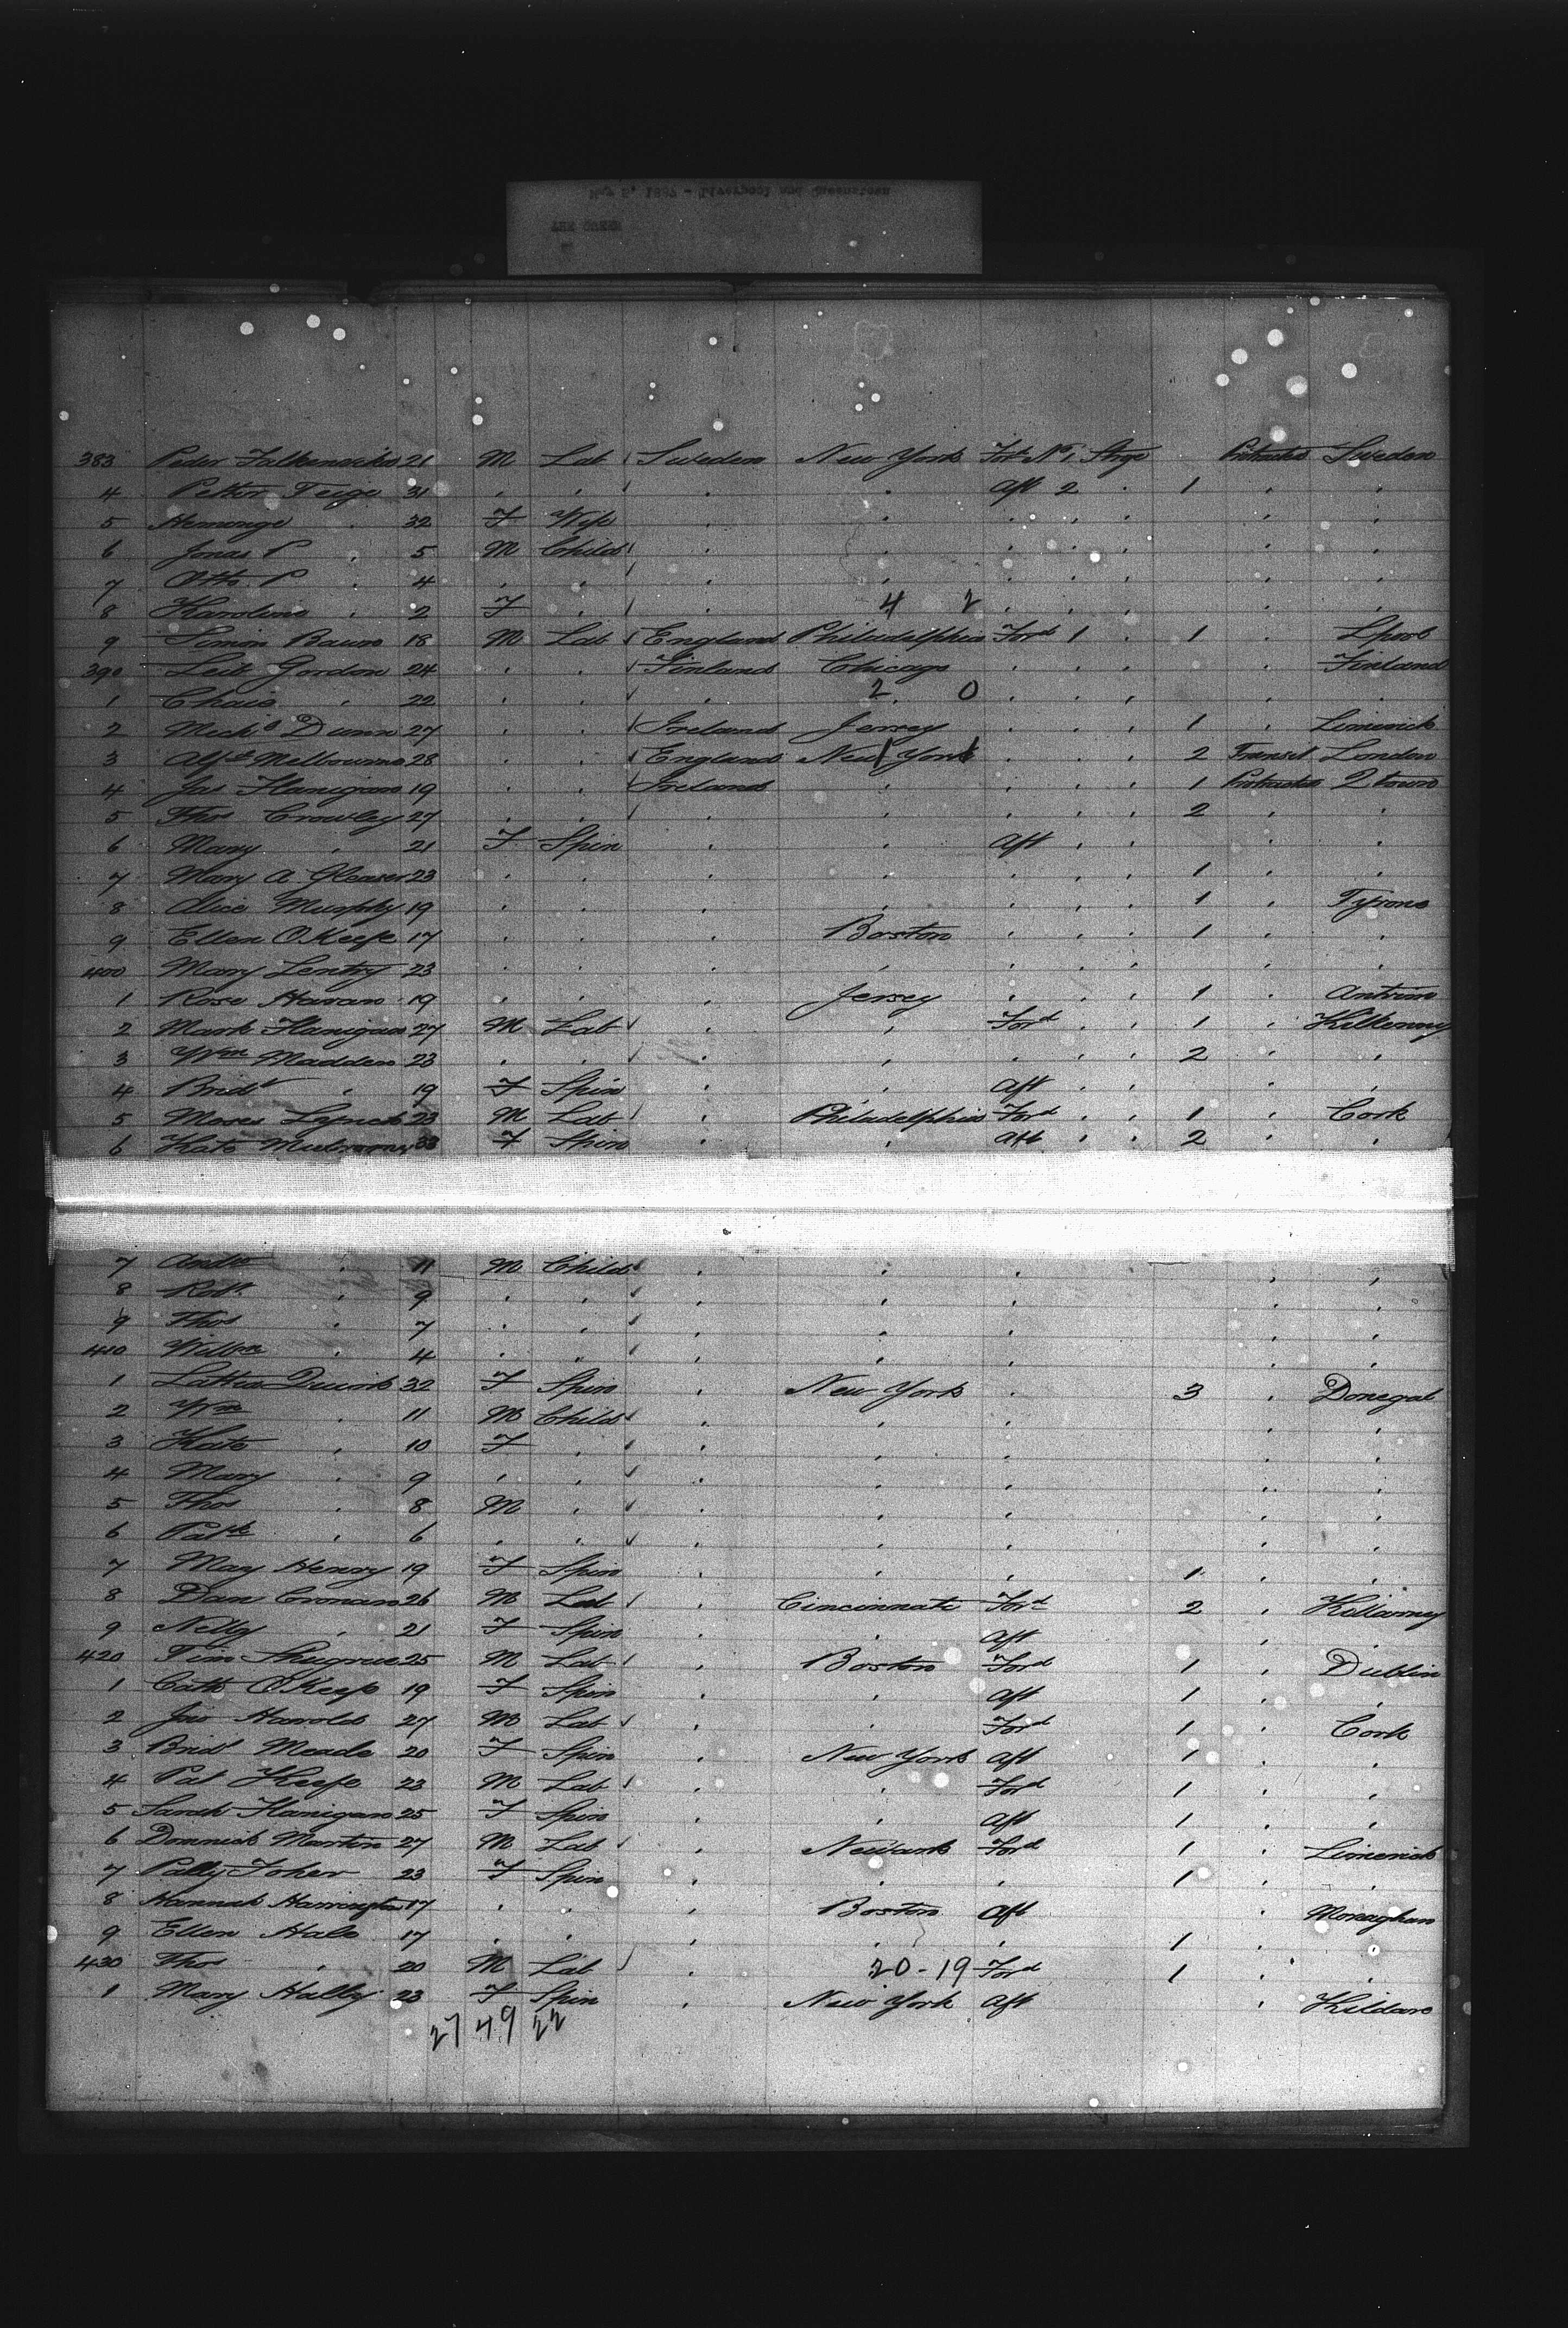 May 5, 1887 - Liverpool and Queenstown
THE QUEEN
383 Peder 21 M Lab Sweden New York Ford No 1 Stge Protracted Sweden
4 Petter Teige 31 " " " " Aft 2 " 1 " "
5 " 32 F Wife " " " " " " "
6 Jonas P " 5 M Child " " " " " " "
7 Otto P " 4 " " " " " " " " "
8 Karoline " 2 F " " 4 2 " " " " "
9 Simon Baum 18 M Lab England Philadelphia Ford 1 " 1 " Lpool
390 Leib Gordon 24 " " Finland Chicago " " " " Finland
1 Chaie " 22 " " " 2 0 " " " " "
2 Michl Dunn 27 " " Ireland Jersey " " " 1 " Limerick
3 Alfd Melbourne 28 " " England New York " " " 2 Transit London
4 Jas Flanigan 19 " " Ireland " " " " 1 Protracted Qtown
5 Thos Crowley 27 " " " " " " " 2 " "
6 Mary " 21 F Spin " " Aft " " " "
7 Mary A Gleaser 23 " " " " " " " 1 " "
8 Alice Murphy 19 " " " " " " " 1 " Tyrone
9 Ellen O'Keefe 17 " " " Boston " " " 1 " "
400 Mary Lentry 23 " " " " " " " " "
1 Rose Havan 19 " " " Jersey " " " 1 " Antrim
2 Mark Flanigan 27 M Lab " " Ford " " 1 " Kilkenny
3 Wm Madden 23 " " " " " " " 2 " "
4 Bridt " 19 F Spin " " Aft " " " "
5 Moses Lynch 23 M Lab " Philadelphia Ford " " 1 " Cork
6 Kate 33 F Spin " " Aft " " 2 " "
7 Andw " 11 M Child " " " " "
8 Robt " 9 " " " " " " "
9 Thos " 7 " " " " " " "
410 " 4 " " " " " " "
1 Quirk 32 F Spin " New York " 3 " Donegal
2 Wm " 11 M Child " " " " "
3 Kate " 10 F " " " " " "
4 Mary " 9 " " " " " " "
5 Thos " 8 M " " " " " "
6 Patk " 6 " " " " " " "
7 May Henry 19 F Spin " " " 1 " "
8 Dan Cronan 26 M Lab " Cincinnati Ford 2 " Killarney
9 Nelly " 21 F Spin " " Aft " "
420 Tim Shugrue 25 M Lab " Boston Ford 1 " Dublin
1 Cath O'Keefe 19 F Spin " " Aft 1 " "
2 Jno Harold 27 M Lab " " Ford 1 " Cork
3 Bridt Meade 20 F Spin " New York Aft 1 " "
4 Pat Keefe 23 M Lab " " Ford 1 " "
5 Sarah Flanigan 25 F Spin " " Aft 1 " "
6 Domnick Martin 27 M Lab " Newark Ford 1 " Limerick
7 Patty Toker 23 F Spin " " " 1 " "
8 Hannah Harrington 17 " " " Boston Aft " Monaghan
9 Ellen Hale 17 " " " " " 1 " "
430 Thos " 20 M Lab " 20-19 Ford 1 " "
1 Mary Halley 23 F Spin " New York Aft " Kildare
27 49 22